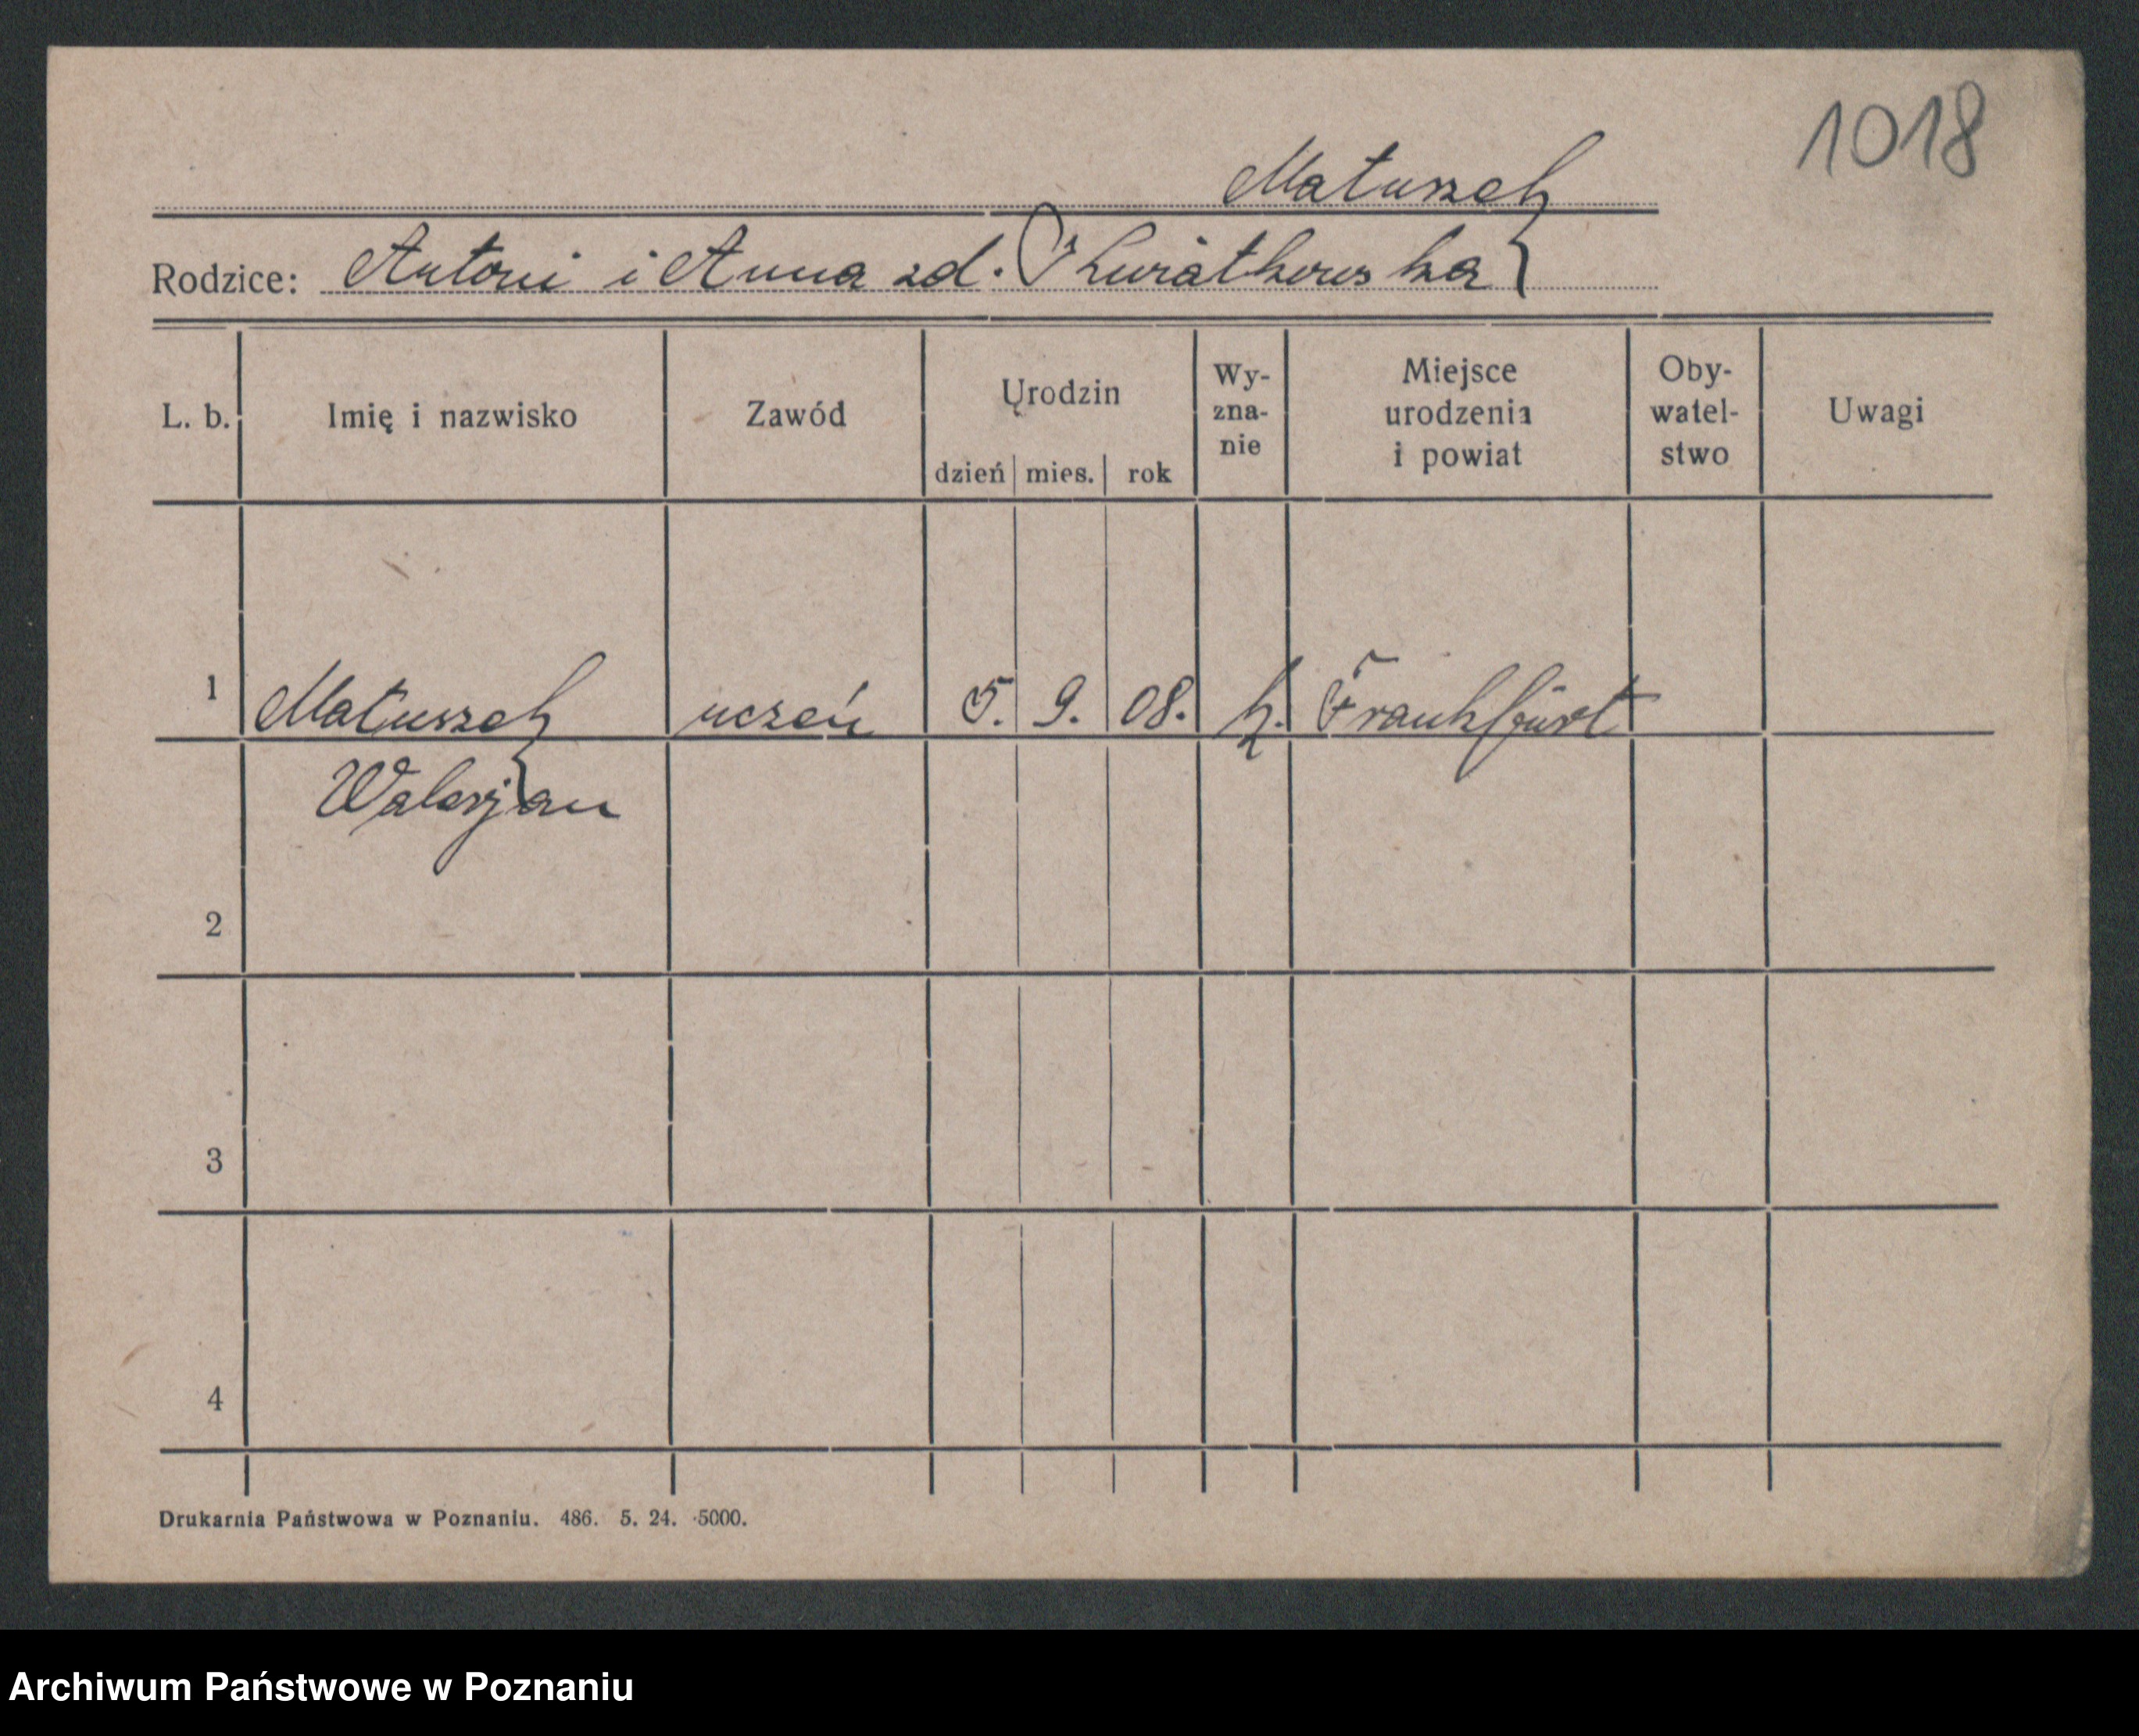 1018
Matuszek
Rodzice: Antoni i Anna zd. Kwiatkowska
L. b. Imię i nazwisko Zawód Urodzin dzień mies. rok Wy-zna-nie Miejsce urodzenia i powiat Oby-watel-stwo Uwagi
1 Matuszek uczeń 5. 9. 08. k. Frankfurt
Waleryjan
2
3
4
Drukarnia Państwowa w Poznaniu. 486. 5. 24. 5000.
Archiwum Państwowe w Poznaniu